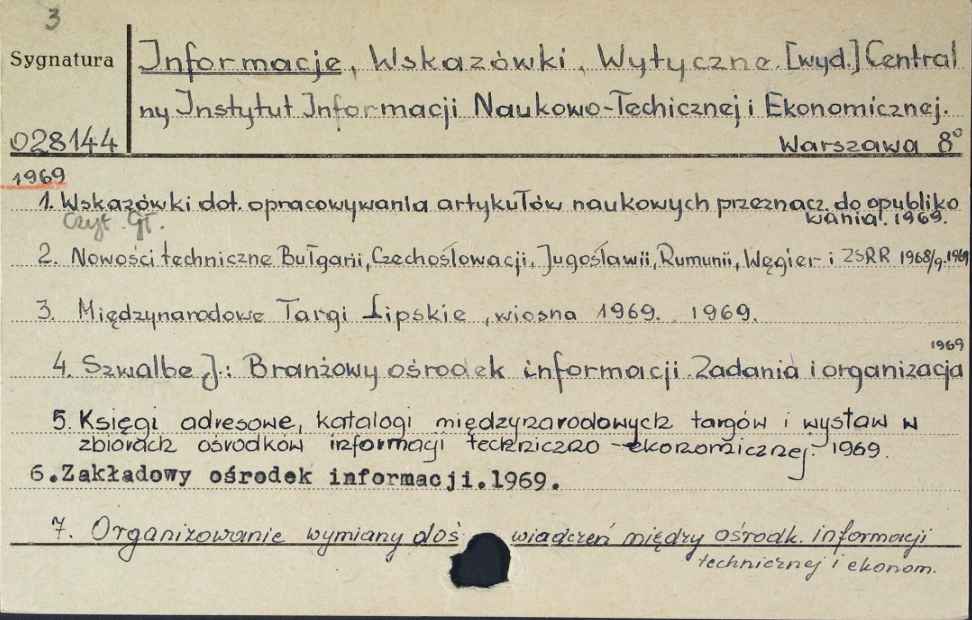 3
Sygnatura
Informacje, Wskazówki, Wytyczne. [wyd.] Central
ny Instytut Informacji Naukowo-Techicznej i Ekonomicznej.
028144
Warszawa 8°
1969
1. Wskazówki dot. opracowywania artykułów naukowych przeznacz. do opubliko
wania. 1969.
Czyt. Gł.
2. Nowości techniczne Bułgarii, Czechosłowacji, Jugosławii, Rumunii, Węgier i ZSRR 1968/9. 1969
3. Międzynarodowe Targi Lipskie, wiosna 1969. 1969.
1969
4. Szwalbe J.: Branżowy ośrodek informacji Zadania i organizacja
5. Księgi adresowe, katalogi międzynarodowych targów i wystaw w
zbiorach ośrodków informacji techniczno-ekonomicznej. 1969.
6. Zakładowy ośrodek informacji. 1969.
7. Organizowanie wymiany doś wiadczeń między ośrodk. informacji
technicznej i ekonom.